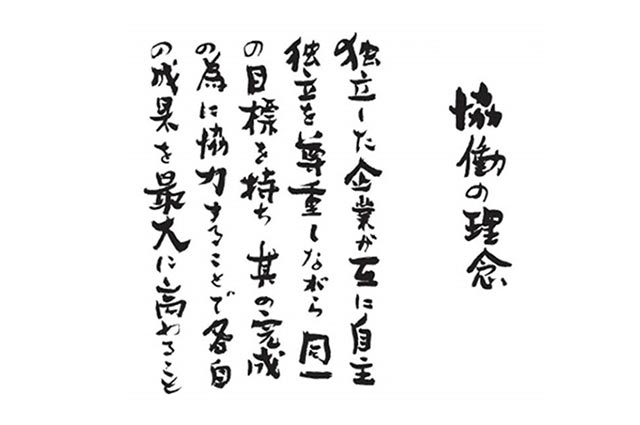 協働の理念
独立した企業が互に自主
独立を尊重しながら同一
の目標を持ち其の完成
の為に協力することで各自
の成果を最大に高めること